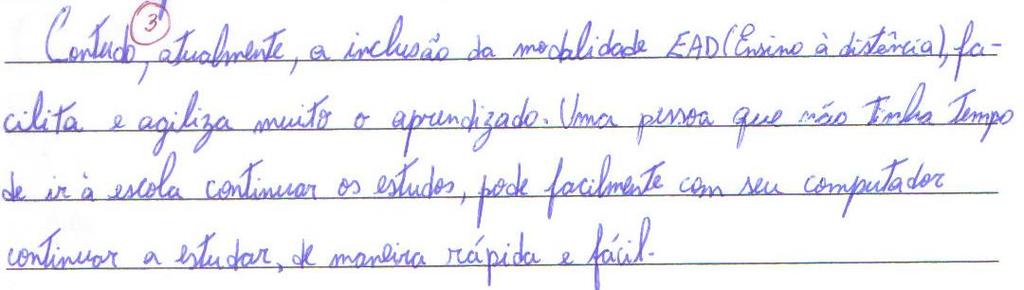 3
Contudo, atualmente, a inclusão da modalidade EAD (Ensino à distância), fa-
cilita e agiliza muito o aprendizado. Uma pessoa que não tinha tempo
de ir à escola continuar os estudos, pode facilmente com seu computador
continuar a estudar, de maneira rápida e fácil.